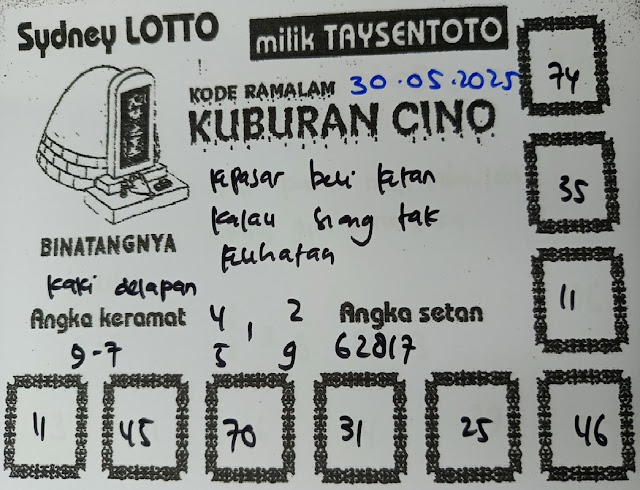 Sydney LOTTO
milik TAYSENTOTO
KODE RAMALAM 30.05.2025
KUBURAN CINO
74
kepasar beli ketan
kalau siang tak
kelihatan
35
BINATANGNYA
kaki delapan
11
Angka keramat
9-7
4, 2
5 9
Angka setan
62817
11 45 70 31 25 46